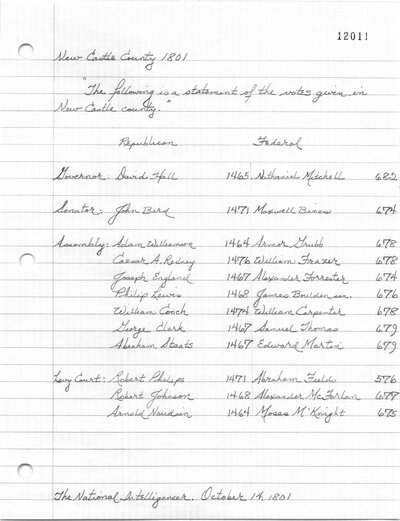 12011
New Castle County 1801
"The following is a statement of the votes given in
New Castle county."
Republican Federal
Governor: David Hall 1465 Nathaniel Mitchell 682
Senator: John Bird 1471 Maxwell Bines 674
Assembly: Adam Williamson 1464 Armor Grubb 678
Caesar A. Rodney 1476 William Frazer 678
Joseph England 1467 Alexander Forrester 674
Philip Lewis 1468 James Boulden, sen. 676
William Cooch 1474 William Carpenter 678
George Clark 1467 Samuel Thomas 679
Abraham Staats 1467 Edward Martin 679
Levy Court: Robert Philips 1471 Abraham Fields 576
Robert Johnson 1468 Alexander McFarlan 677
Arnold Naudain 1464 Moses M'Knight 675
The National Intelligencer. October 14, 1801